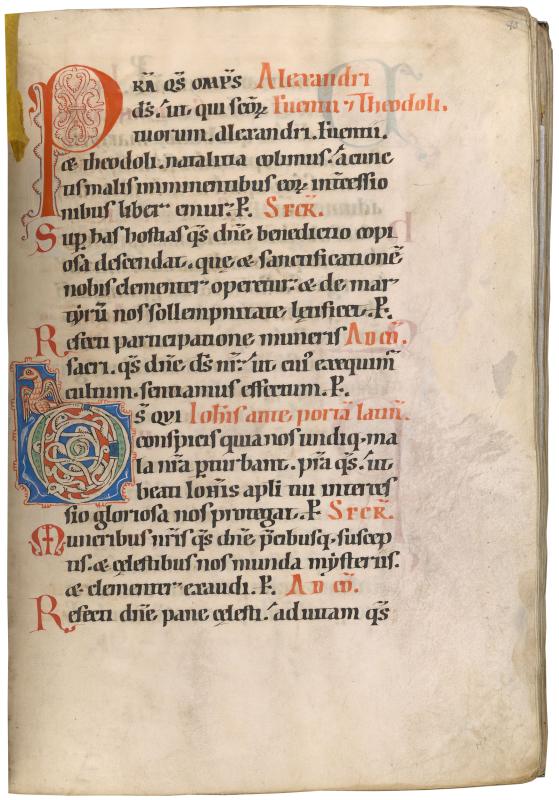 PRA QS OMPS Alexandri
ds. ut qui scōꝝ Euentii ⁊ Theodoli.
tuorum. alexandri. Euentii.
& theodoli. natalitia colimus. a cunc
tis malis imminentibus eoꝝ intercessio
nibus liber emur. P. SECR.
Sup has hostias qs dñe benedictio copi
osa descendat. que & sanctificationē
nobis clementer operetur. & de mar
tyrū nos sollempnitate letificet. P.
Refecti participatione muneris AD CŌ.
sacri. qs dñe ds nr. ut cuiꝰ exequimur
cultum. sentiamus effectum. P.
DS QUI Iohis ante portā latin̄.
conspicis quia nos undiq. ma
la nr̄a pturbant. pr̄a qs. ut
beati Ioh̄is apli tui interces
sio gloriosa nos protegat. P. SECR.
Muneribus nr̄is qs dñe p̄cibusq. suscep
tis. & celestibus nos munda mysteriis.
& clementer exaudi. P. AD CŌ.
Refecti dñe pane celesti. ad uitam qs